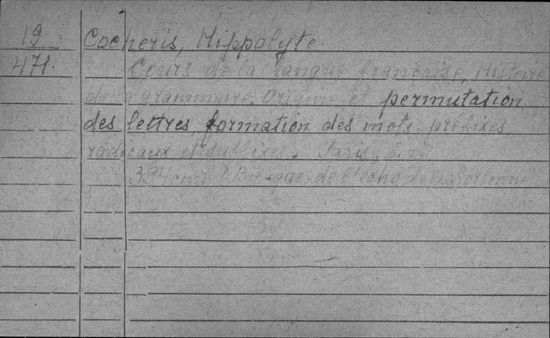 19 Cocheris, Hippolyte.
471. Cours de la langue française, Histoire
de la grammaire. Origine et permutation
des lettres, formation des mots. préfixes
radicaux et suffixes. Paris,
de l'echo de la Sorbonne